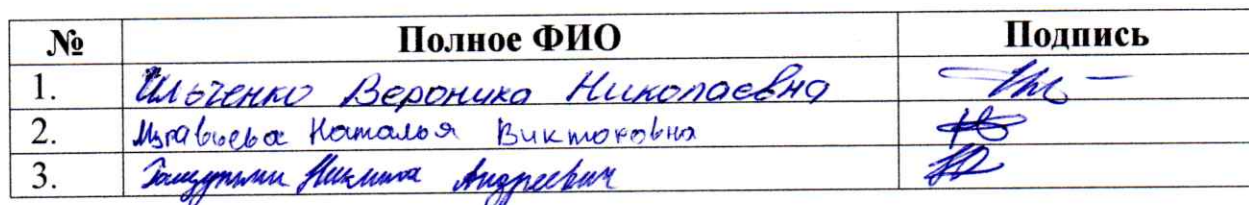 № Полное ФИО Подпись
1. Ильченко Вероника Николаевна
2. Муравьева Наталья Викторовна
3. Никита Андреевич